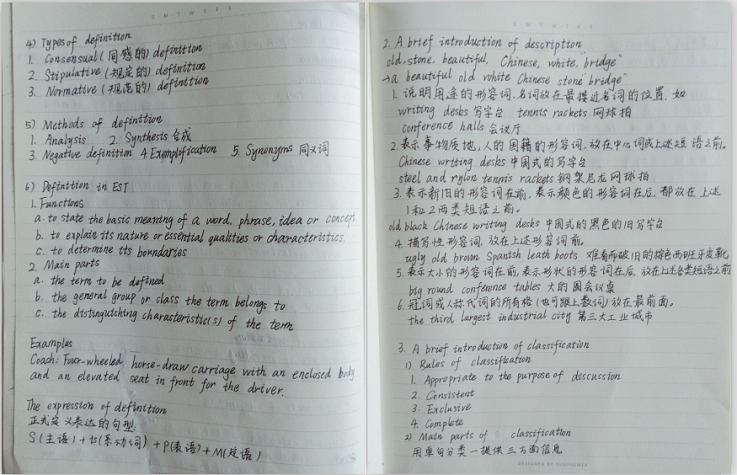 4) Types of definition
1. Consensual (同感的) definition
2. Stipulative (规定的) definition
3. Normative (规范的) definition
5) Methods of definition
1. Analysis 2. Synthesis 合成
3. Negative definition 4 Exemplification 5. Synonyms 同义词
6) Definition in EST
1. Functions
a. to state the basic meaning of a word, phrase, idea or concept
b. to explain its nature or essential qualities or characteristics.
c. to determine its boundaries
2. Main parts
a. the term to be defined
b. the general group or class the term belongs to
c. the distinguishing characteristic(s) of the term
Examples
Coach: Four-wheeled, horse-draw carriage with an enclosed body
and an elevated seat in front for the driver.
The expression of definition
正式定义表达的句型:
S(主语)+ (系动词)+P(表语)+M(定语)
2. A brief introduction of description
old, stone, beautiful, Chinese, white, "bridge"
→a beautiful old white Chinese stone bridge"
1. 说明用途的形容词、名词放在最接近名词的位置, 如
writing desks 写字台 tennis rackets 网球拍
conference halls 会议厅
2. 表示事物质地,人的国籍的形容词,放在中心词或上述短语之前。
Chinese writing desks 中国式的写字台
steel and nylon tennis rackets 钢架尼龙网球拍
3. 表示新旧的形容词在前, 表示颜色的形容词在后, 都放在上述
1和2两类短语之前。
old black Chinese writing desks 中国式的黑色的旧写字台
4. 描写性形容词, 放在上述形容词前,
ugly old brown Spanish leath boots 难看而破旧的棕色西班牙皮靴
5. 表示大小的形容词在前, 表示形状的形容词在后, 放在上述各类短语之前
big round conference tables 大的圆会议桌
6. 冠词或人称代词的所有格(也可跟上数词)放在最前面。
the third largest industrial city 第三大工业城市
3. A brief introduction of classification
1) Rules of classification
1. Appropriate to the purpose of discussion
2. Consistent
3. Exclusive
4. Complete
2) Main parts of classification
用单句分类—提供三方面信息